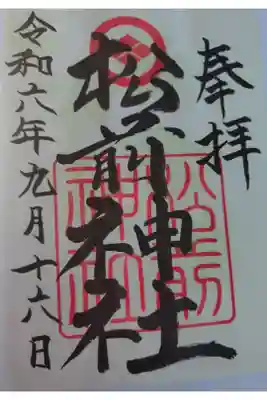 奉拝
松前神社
松前神社
令和六年九月十六日